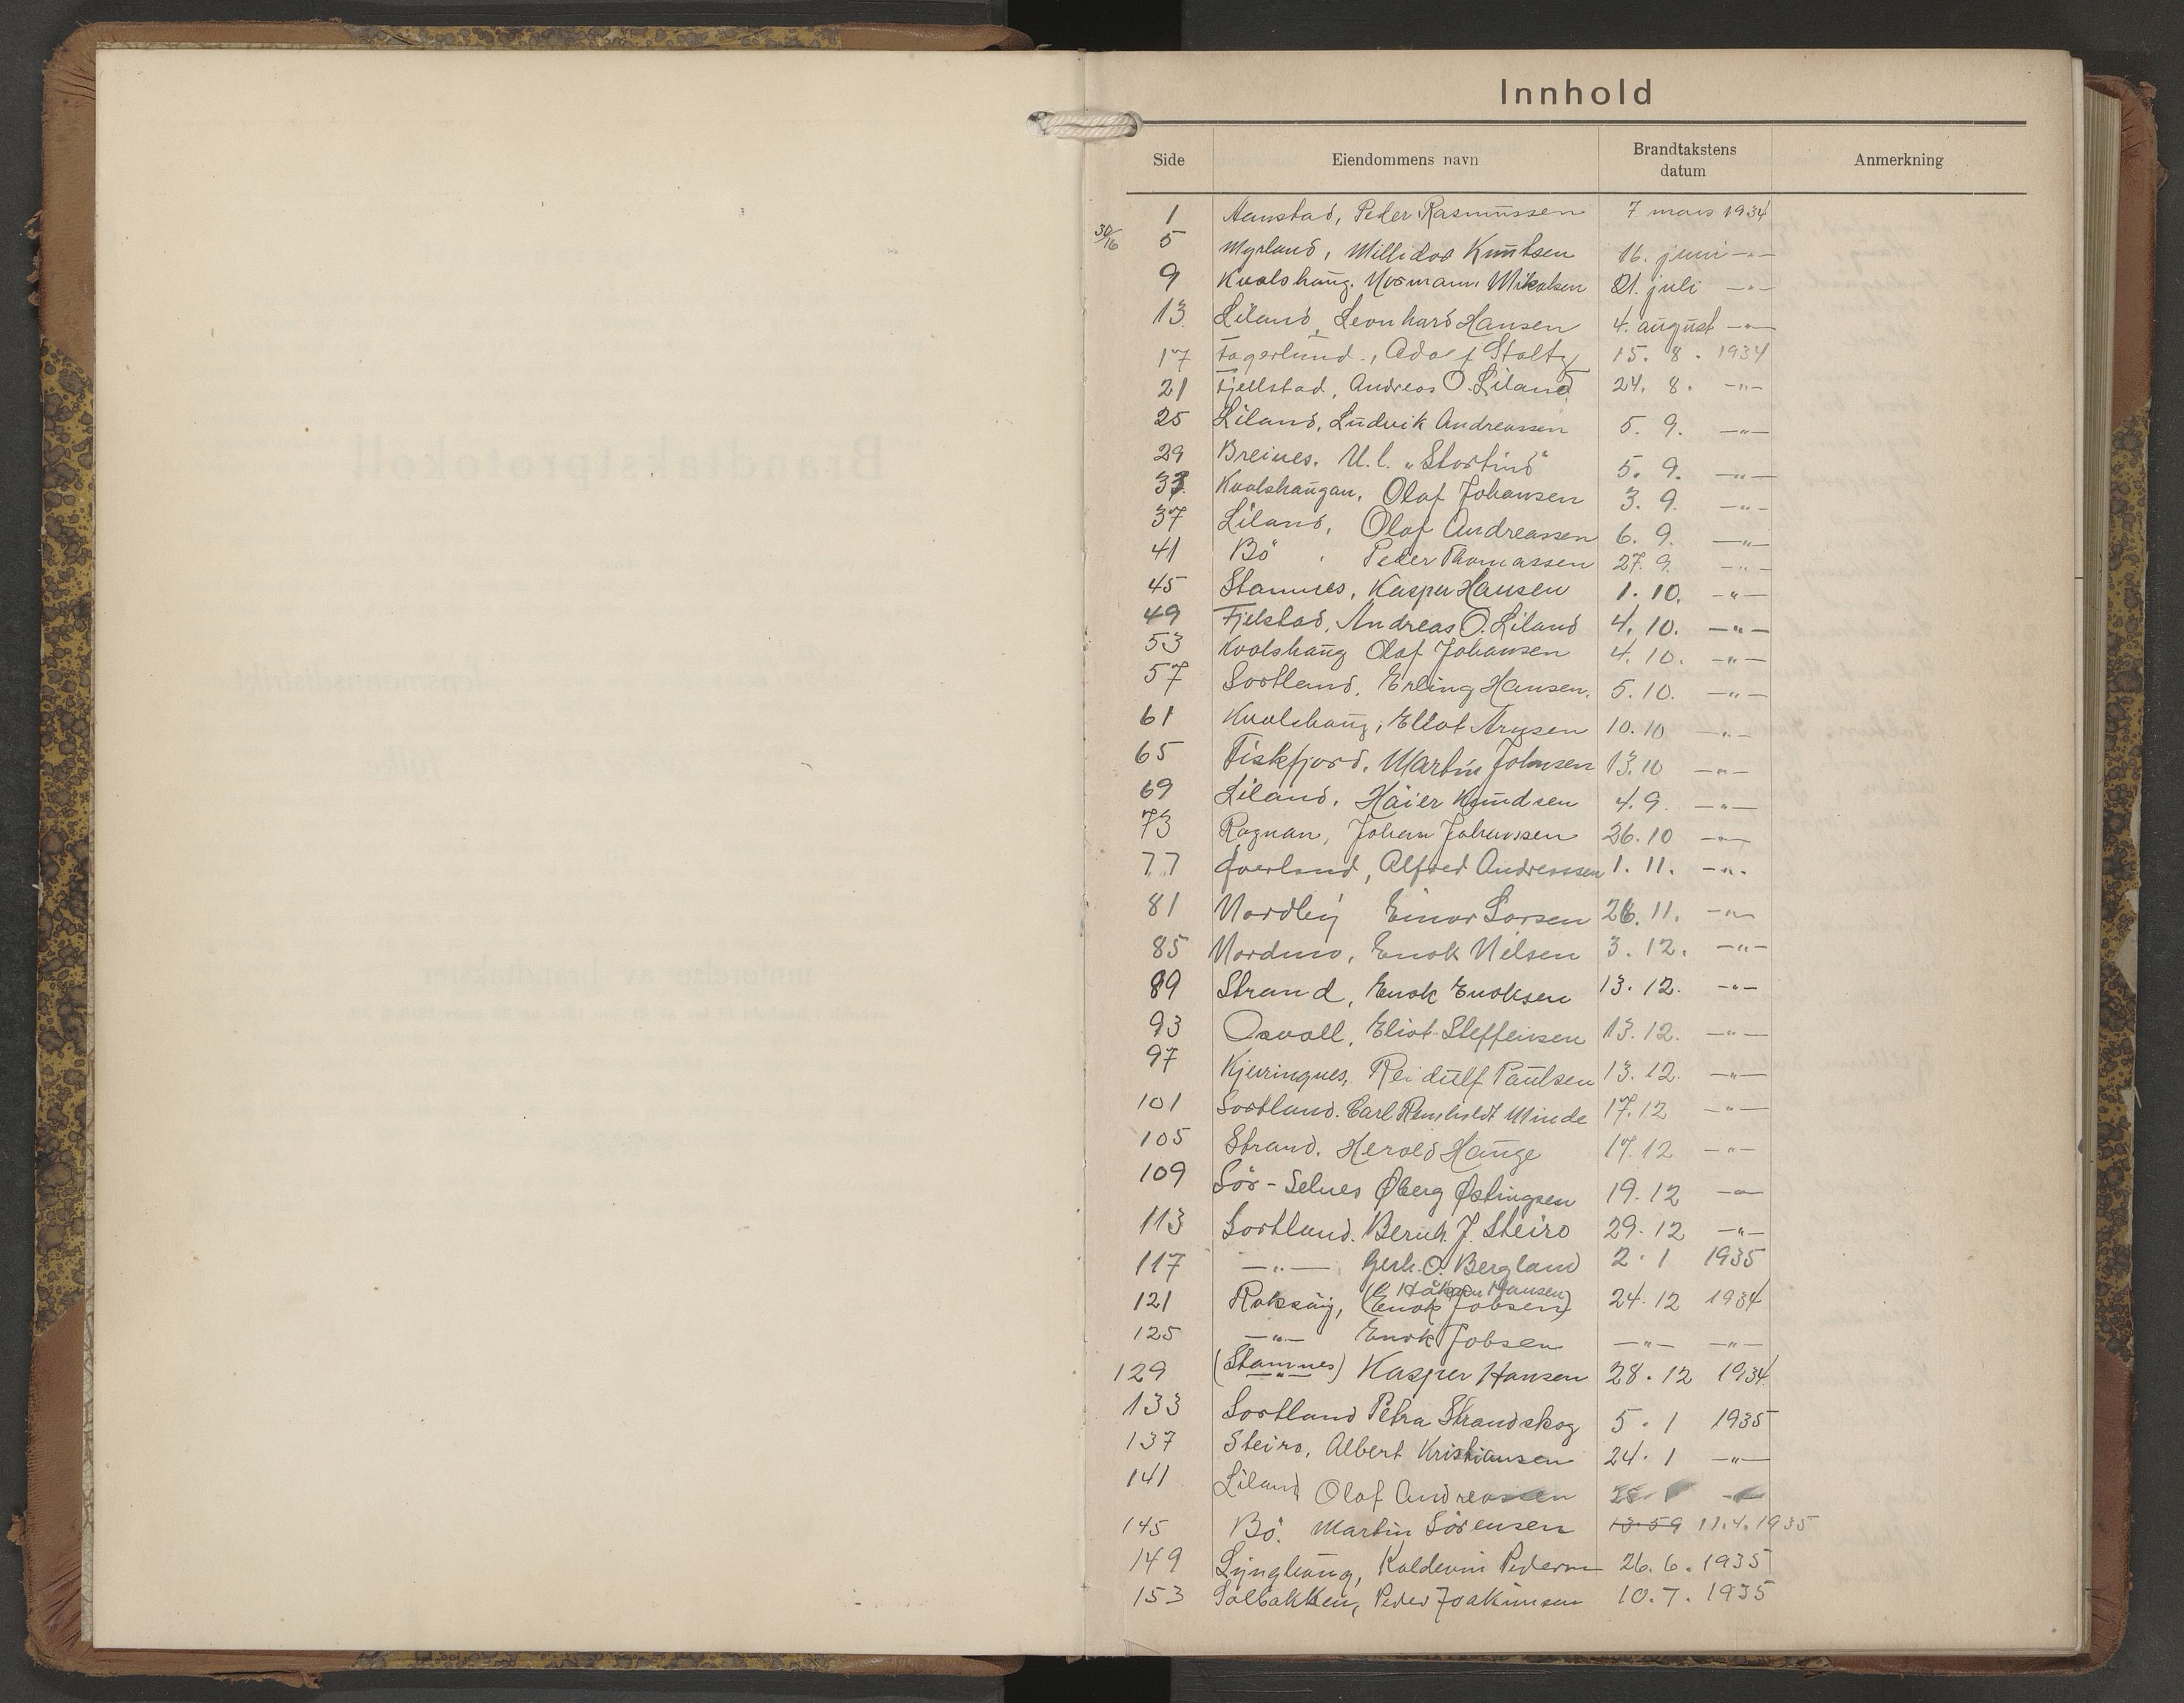 Innhold
Side Eiendommens navn Brandtakstens datum Anmerkning
1 Aanstad, Peder Rasmussen 7. mars 1934
30/16 5 Myrland, Millidor Knutsen 16. juni -"-
9 Kvalshaug. Normann Mikalsen 21. juli -"-
13. Liland, Leonhard Hansen 4. august -"-
17 Fagerlund., Adolf Stoltz 15. 8. 1934
21 Fjellstad, Andreas O. Liland 24. 8. -"-
25 Liland, Ludvik Andreassen 5. 9. -"-
29 Breines. U.l. "Stortind" 5. 9. -"-
33. Kvalshaugan, Olaf Johansen 3. 9. -"-
37 Liland, Olaf Andreassen 6. 9. -"-
41 Bö . Peder Thomassen 27. 9. -"-
45 Stamnes, Kasper Hansen 1. 10. -"-
49 Fjelstad, Andreas O. Liland 4. 10. -"-
53 Kvalshaug Olaf Johansen 4. 10. -"-
57 Sortland, Erling Hansen. 5. 10. -"-
61 Kvalshaug, Eliot Arysen 10. 10 -"-
65 Fiskfjord, Martin Johnsen 13. 10 -"-
69 Liland, Häier Knudsen 4. 9. -"-
73 Rognan, Johan Johansen 26. 10 -"-
77 Øverland, Alfred Andreassen 1. 11. -"-
81 Nordby Einar Larsen 26. 11. -"-
85 Nordmo, Enok Nilsen 3. 12. -"-
89 Strand, Enok Enoksen 13. 12. -"-
93 Osvoll, Eliot Steffensen 13. 12. -"-
97 Kjerringnes, Reidulf Paulsen 13. 12. -"-
101 Sortland. Carl Reinholdt Minde 17. 12 -"-
105 Strand. Herold Hauge 17. 12 -"-
109 Sör-Selnes Øberg Østingsen 19. 12 -"-
113 Sortland. Bernh. J. Steiro 29. 12 -"-
117 -"- Gerh. O. Bergland 2. 1 1935
Håkon Hansen
121 Roksöy, (Enok Jobsen) 24. 12 1934
125 -"- Enok Jobsen -"- -"-
129 (Stamnes) -"- Kasper Hansen 28. 12 1934
133 Sortland Petra Strandskog 5. 1 1935
137 Steiro, Albert Kristiansen 24. 1 -"-
141 Liland Olaf Andreassen
145 Bö. Martin Sörensen 13.59 11.4.1935
149 Lynghaug, Kaldevin Pedersen 26. 6. 1935
153 Solbakken, Peder Joakimsen 10. 7. 1935